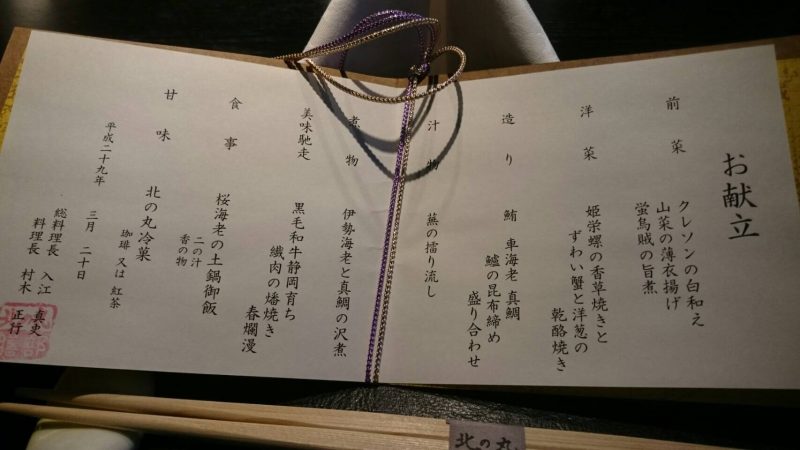 お献立
前菜
クレソンの白和え
山菜の薄衣揚げ
蛍烏賊の旨煮
洋菜
姫栄螺の香草焼きと
ずわい蟹と洋葱の
乾酪焼き
造り
鮪 車海老 真鯛
鱸の昆布締め
盛り合わせ
汁物
蕪の擂り流し
煮物
伊勢海老と真鯛の沢煮
美味馳走
黒毛和牛静岡育ち
繊肉の燔焼き
春爛漫
食事
桜海老の土鍋御飯
二の汁
香の物
甘味
北の丸冷菓
珈琲 又は 紅茶
平成二十九年 三月 二十日
総料理長 入江 真史
料理長 村木 正行
北の丸